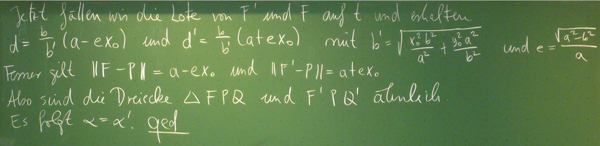 Jetzt fällen wir die Lote von F' und F auf t und erhalten
d = b/b' (a-ex₀) und d' = b/b' (a+ex₀) mit b' = √(x₀²b²/a² + y₀²a²/b²) und e = √(a²-b²)/a
Ferner gilt ||F-P|| = a-ex₀ und ||F'-P|| = a+ex₀
Also sind die Dreiecke △FPQ und F'PQ' ähnlich.
Es folgt α = α'. qed